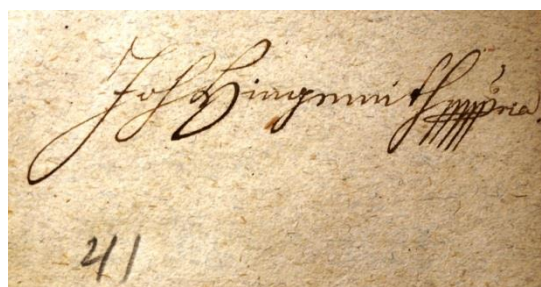 Joh Hingsmith mpria
41